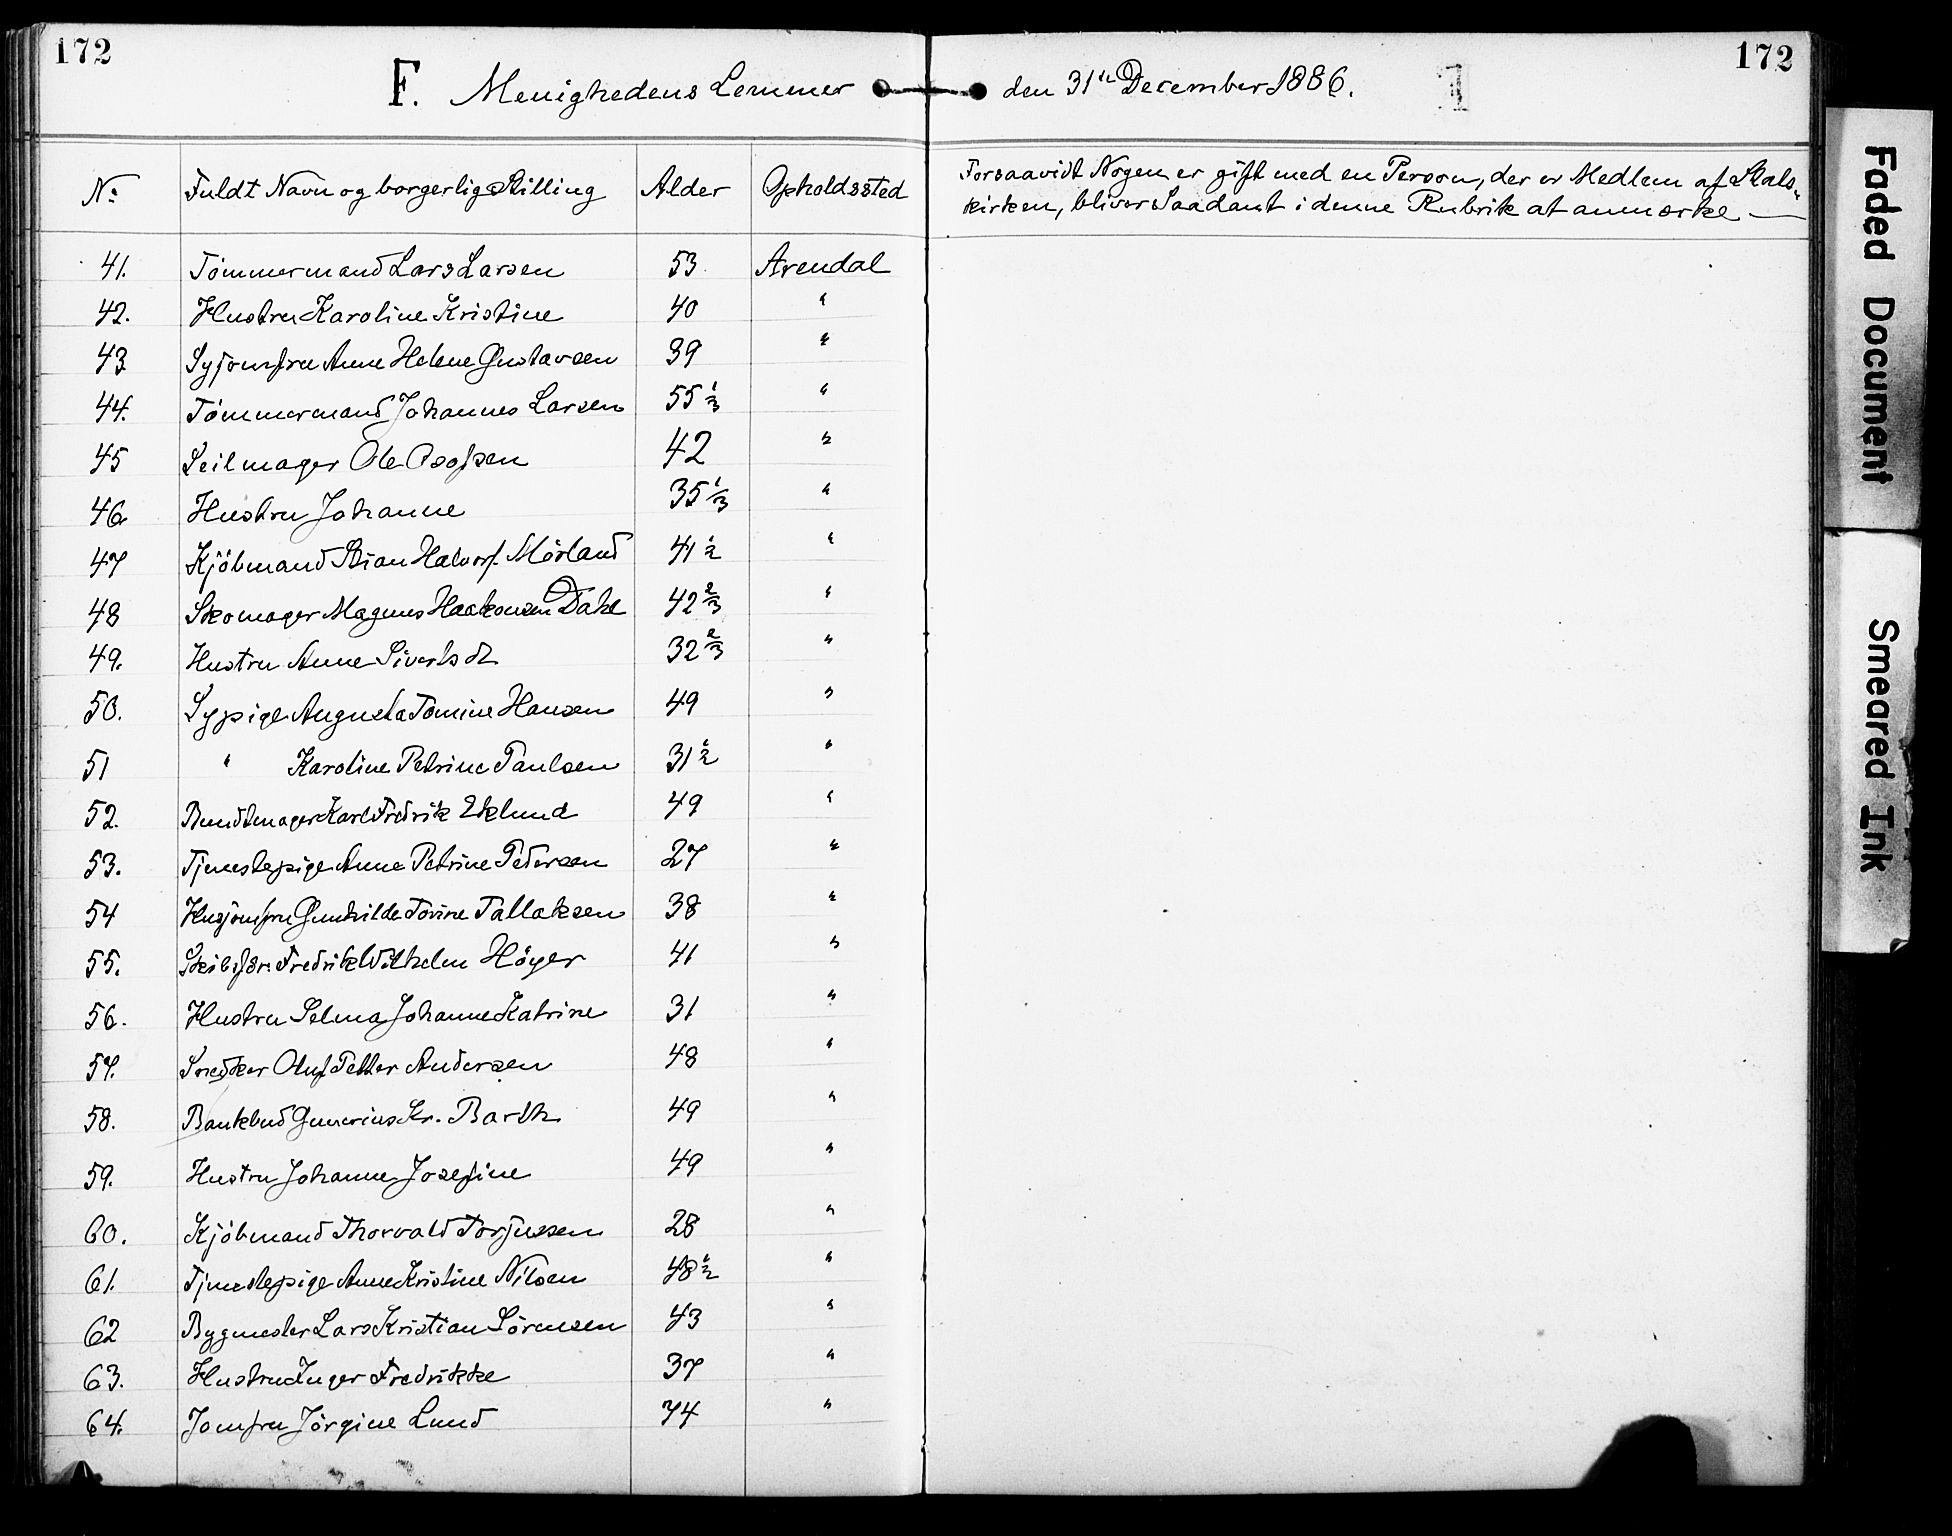 172
172
F. Menighedens Lemmer den 31te December 1886.
No Fuldt Navn og borgerlig Stilling Alder Opholdssted Forsaavidt Nogen er gift med en Person, der er Medlem af Stats-
kirken, bliver Saadant i denne Rubrik at anmærke —
41. Tömmermand Lars Larsen 53 Arendal
42. Hustru Karoline Kristine 40 "
43 Syjomfru Anne Helene Gustavsen 39 "
44. Tömmermand Johannes Larsen 55 1/3 "
45 Seilmager Ole 42 "
46 Hustru Johanne 35 1/3 "
47 Kjöbmand Stian Halvors. Mörland 41 1/2 "
48 Skomager Magnus Haakonsen Dahl 42 2/3 "
49. Hustru Anne Sivertsdt 32 2/3 "
50. Sypige Augusta Tomine Hansen 49 "
51 " Karoline Petrine Paulsen 31 1/2 "
52. Bundtmager Karl Fredrik Eklund 49 "
53. Tjenestepige Anne Petrine Pedersen 27 "
54 Husjomfru Gunhilde Tovine Tallaksen 38 "
55. Skibsför. Fredrik Wilhelm Höyer 41 "
56. Hustru Selma Johanne Katrine 31 "
57. Snedker Oluf Petter Andersen 48 "
58. Bankbud Gunerius Kr. Barth 49 "
59. Hustru Johanne Josefine 49 "
60. Kjöbmand Thorvald Torjussen 28 "
61. Tjenestepige Anne Kristine Nilsen 48 1/2 "
62 Bygmester Lars Kristian Sörensen 43 "
63. Hustru Inger Fredrikke 37 "
64. Jomfru Jörgine Lund 74 "
Faded Document
Smeared Ink